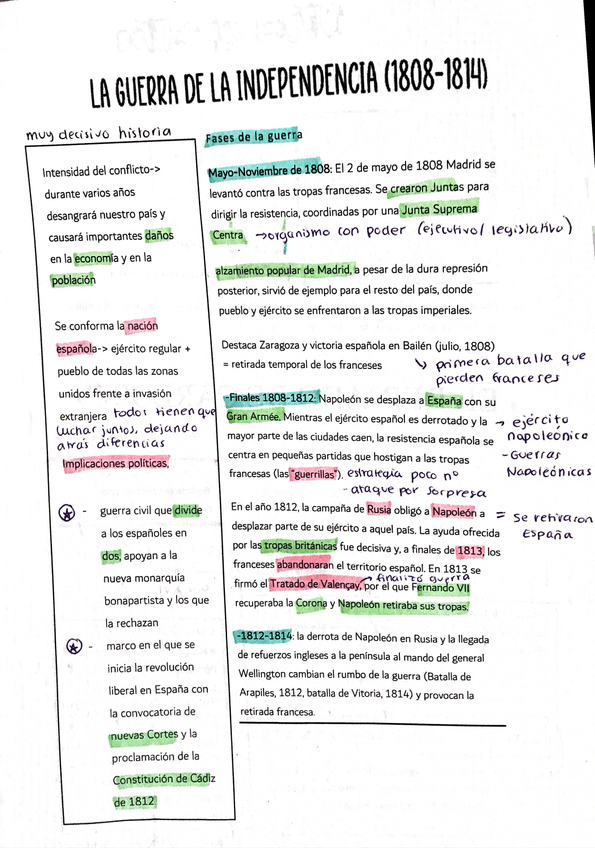 LA GUERRA DE LA INDEPENDENCIA (1808-1814)
muy decisivo historia
Intensidad del conflicto->
durante varios años
desangrará nuestro país y
causará importantes daños
en la economía y en la
población
Se conforma la nación
española-> ejército regular +
pueblo de todas las zonas
unidos frente a invasión
extranjera todos tienen que
luchar juntos, dejando
atrás diferencias
Implicaciones políticas,
- guerra civil que divide
a los españoles en
dos, apoyan a la
nueva monarquía
bonapartista y los que
la rechazan
- marco en el que se
inicia la revolución
liberal en España con
la convocatoria de
nuevas Cortes y la
proclamación de la
Constitución de Cádiz
de 1812
Fases de la guerra
Mayo-Noviembre de 1808: El 2 de mayo de 1808 Madrid se
levantó contra las tropas francesas. Se crearon Juntas para
dirigir la resistencia, coordinadas por una Junta Suprema
Centra →organismo con poder (ejecutivo/ legislativo)
alzamiento popular de Madrid, a pesar de la dura represión
posterior, sirvió de ejemplo para el resto del país, donde
pueblo y ejército se enfrentaron a las tropas imperiales.
Destaca Zaragoza y victoria española en Bailén (julio, 1808)
= retirada temporal de los franceses
↳ primera batalla que
pierden franceses
-Finales 1808-1812: Napoleón se desplaza a España con su
Gran Armée. Mientras el ejército español es derrotado y la
mayor parte de las ciudades caen, la resistencia española se
centra en pequeñas partidas que hostigan a las tropas
francesas (las "guerrillas"). estrategia poco nº
- ataque por sorpresa
→ ejército
napoleónico
-Guerras
Napoleónicas
En el año 1812, la campaña de Rusia obligó a Napoleón a
desplazar parte de su ejército a aquel país. La ayuda ofrecida
por las tropas británicas fue decisiva y, a finales de 1813, los
franceses abandonaran el territorio español. En 1813 se
finalizó guerra
firmó el Tratado de Valençay, por el que Fernando VII
recuperaba la Corona y Napoleón retiraba sus tropas.
= se retiraron
España
-1812-1814: la derrota de Napoleón en Rusia y la llegada
de refuerzos ingleses a la península al mando del general
Wellington cambian el rumbo de la guerra (Batalla de
Arapiles, 1812, batalla de Vitoria, 1814) y provocan la
retirada francesa.